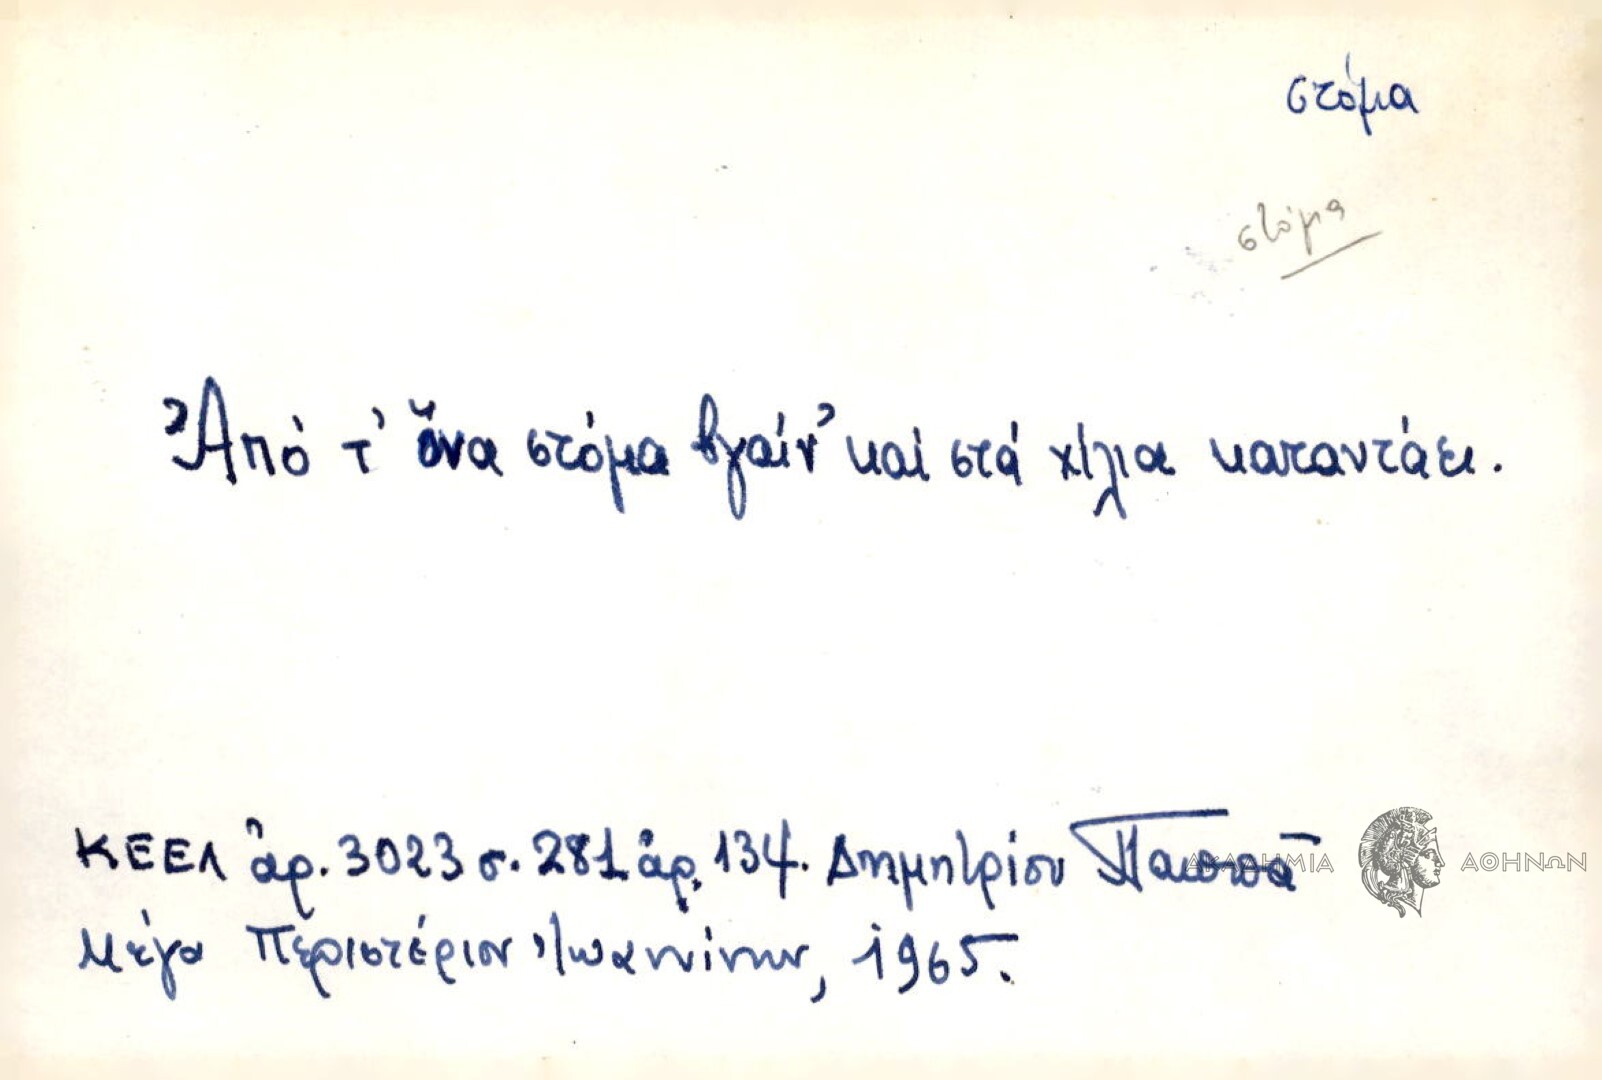 στόμα
στόμα
Ἀπό τ' ὅνα στόμα βγαίν' καί στά χίλια καταντάει.
ΚΕΕΛ ἀρ. 3023 σ. 281 ἀρ. 134. Δημητρίου Παππᾶ
Μέγα Περιστέριον Ἰωαννίνων, 1965.
ΑΚΑΔΗΜΙΑ ΑΘΗΝΩΝ